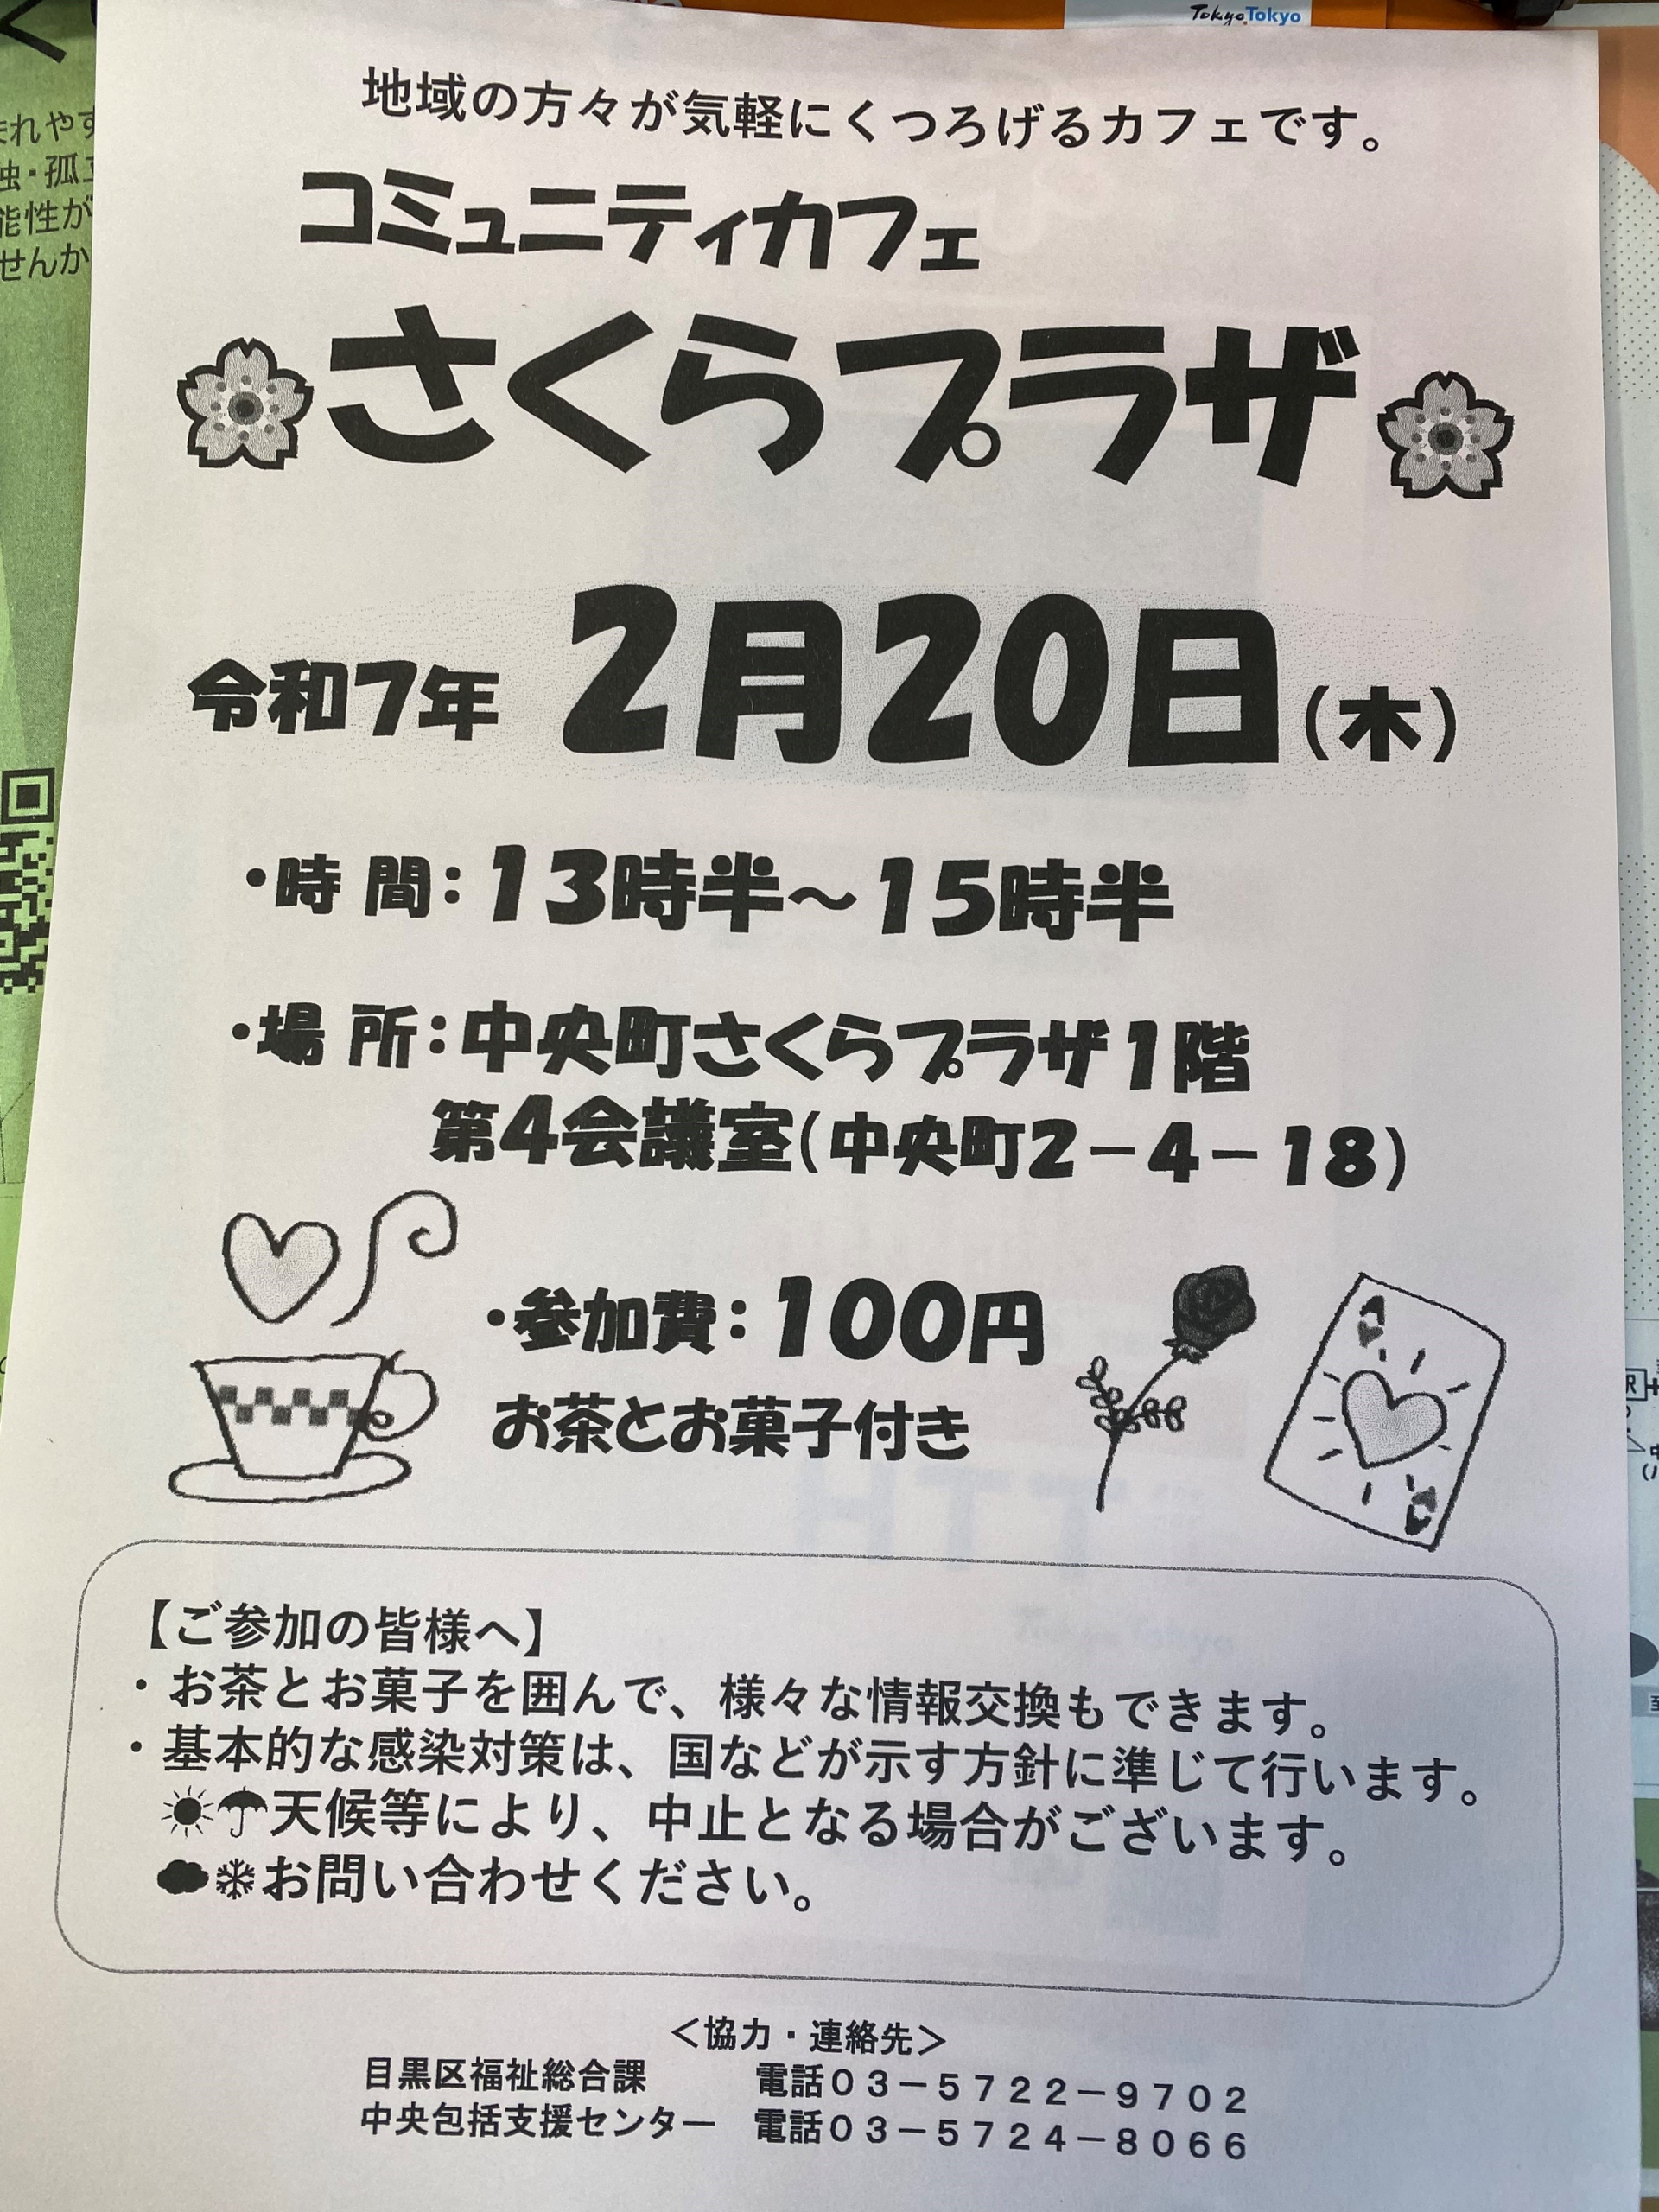 Tokyo Tokyo
地域の方々が気軽にくつろげるカフェです。
コミュニティカフェ
さくらプラザ
令和7年 2月20日(木)
・時 間：13時半～15時半
・場 所：中央町さくらプラザ1階
第4会議室(中央町2－4－18)
・参加費：100円
お茶とお菓子付き
A
A
【ご参加の皆様へ】
・お茶とお菓子を囲んで、様々な情報交換もできます。
・基本的な感染対策は、国などが示す方針に準じて行います。
☀☂天候等により、中止となる場合がございます。
☁❄お問い合わせください。
＜協力・連絡先＞
目黒区福祉総合課 電話０３－５７２２－９７０２
中央包括支援センター 電話０３－５７２４－８０６６
れやす
・孤立
能性が
せんか